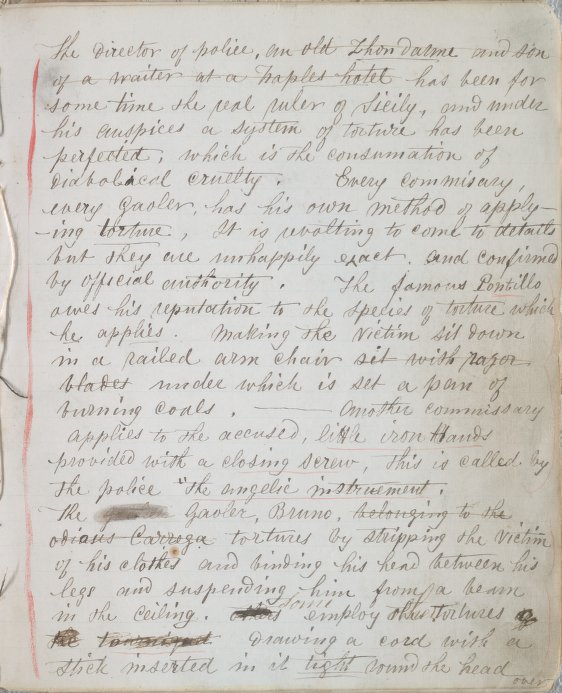 The director of police, an old Zhondarme and son
of a waiter at a Naples hotel has been for
some time the real ruler of Sicily, and under
his auspices a system of torture has been
perfected, which is the consumation of
diabolical cruelty. Every commisary,
every Gaoler, has his own method of apply-
ing torture, It is revolting to come to details
but they are unhappily exact. and confirmed
by official authority. The famous Pontillo
owes his reputation to the species of torture which
he applies. Making the victim sit down
in a railed arm chair set with razor
blades under which is set a pan of
burning coals. Another commissary
applies to the accused, little iron Hands
provided with a closing screw, This is called by
the police "the angelic instruement.
The Gaoler, Bruno, belonging to the
odious Carrega tortures by stripping the victim
of his clothes and binding his head between his
legs and suspending him from a beam
in the ceiling. Some employ tortures
the tourniquet drawing a cord with a
stick inserted in it tight round the head
over